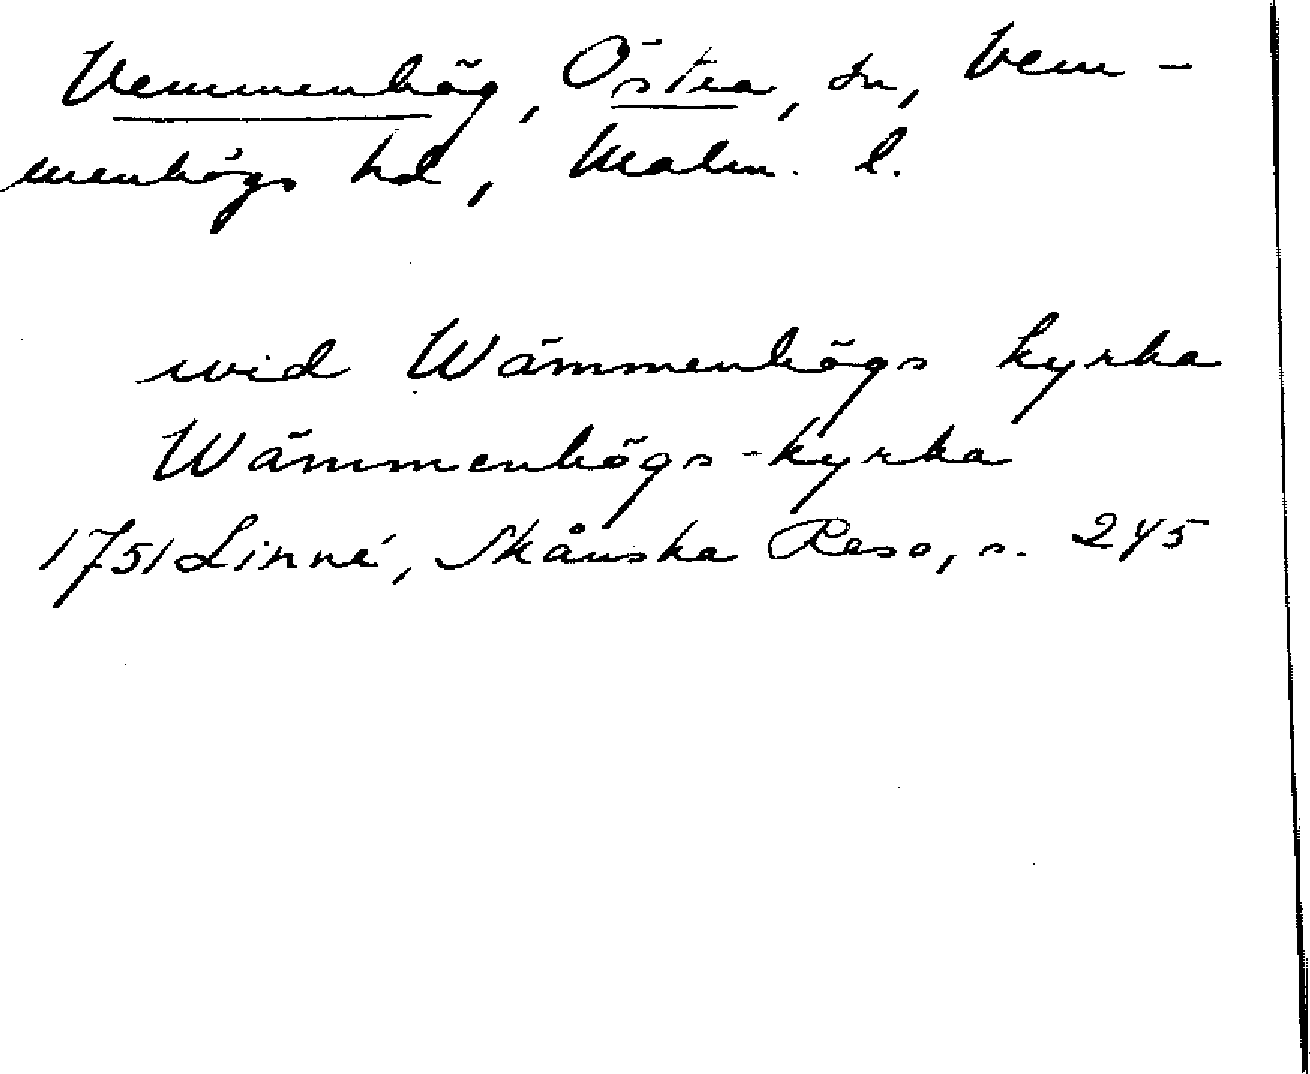 Vemmenhög, Östra, sn, Vem-
menhögs hd, Malm. l.
wid Wämmenhögs kyrka
Wämmenhögs-kyrka
1751 Linné, Skånska Resa, s. 245